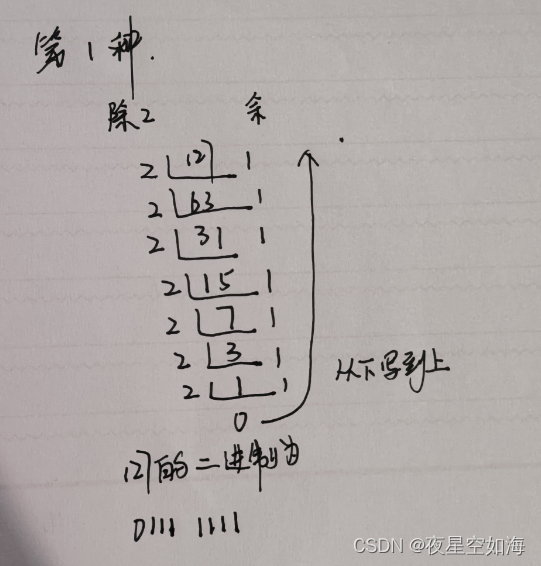 第1种.
除2 余
2 127 1
2 63 1
2 31 1
2 15 1
2 7 1
2 3 1
2 1 1
0
从下写到上
127的二进制为
0111 1111
CSDN @夜星空如海